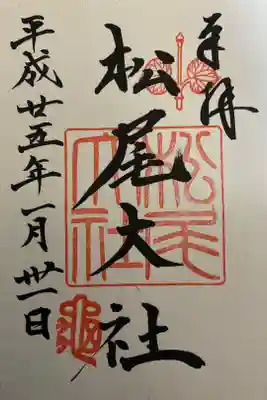 奉拝
松尾大社
松尾大社
平成廿五年一月卅一日